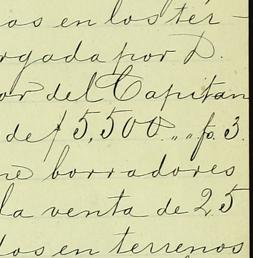 os en los tér-
rgada por D.
or del Capitan
de $5,500 „ „ fs. 3.
ne borradores
la venta de 25
dos en terrenos